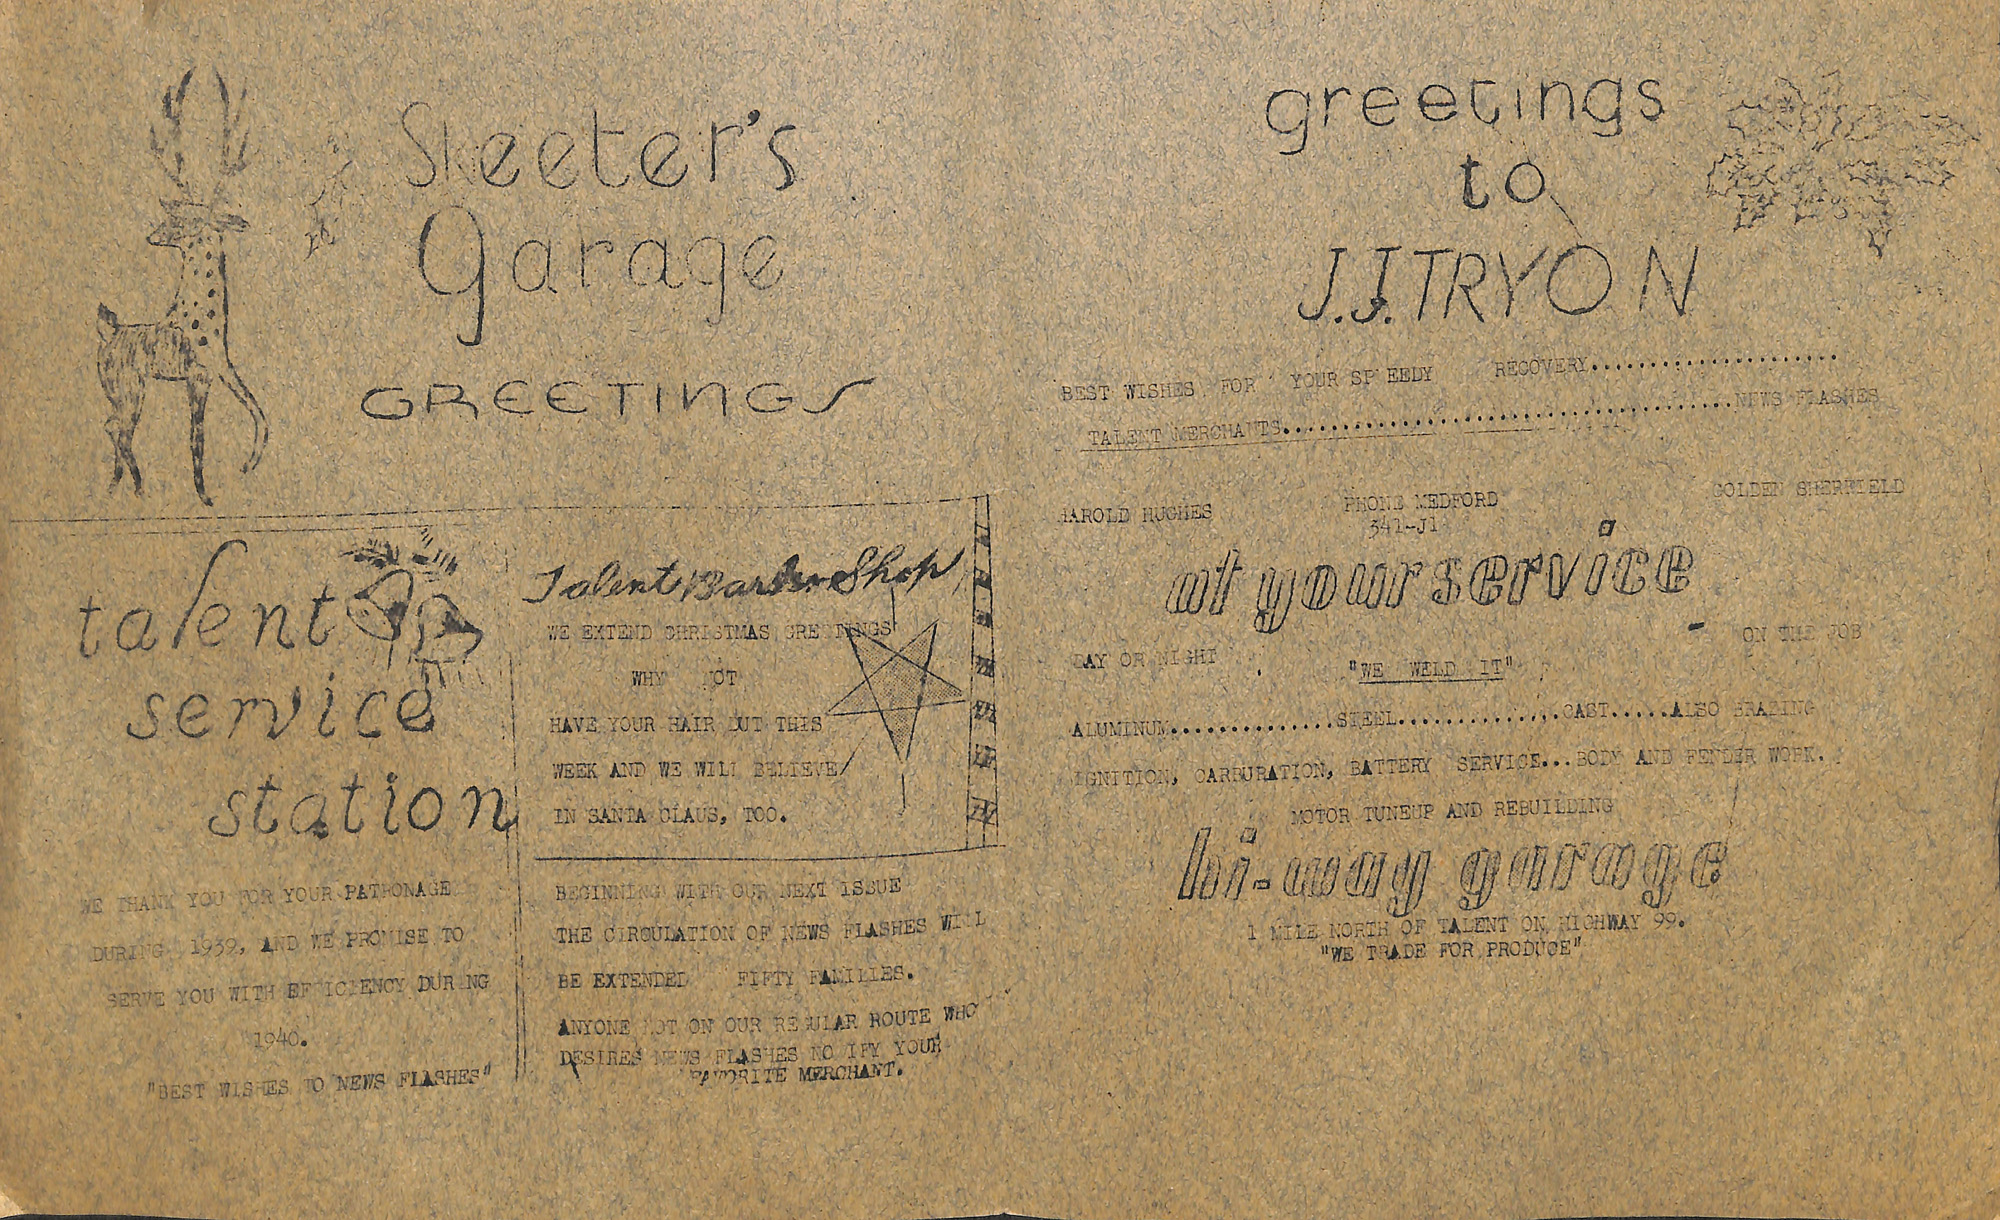 Skeeter's
Garage
GREETINGS
talent
service
station
WE THANK YOU FOR YOUR PATRONAGE
DURING 1939, AND WE PROMISE TO
SERVE YOU WITH EFFICIENCY DURING
1940.
"BEST WISHES TO NEWS FLASHES"
Talent Barber Shop
WE EXTEND CHRISTMAS GREETINGS
WHY NOT
HAVE YOUR HAIR CUT THIS
WEEK AND WE WILL BELIEVE
IN SANTA CLAUS, TOO.
BEGINNING WITH OUR NEXT ISSUE
THE CIRCULATION OF NEWS FLASHES WILL
BE EXTENDED FIFTY FAMILIES.
ANYONE NOT ON OUR REGULAR ROUTE WHO
DESIRES NEWS FLASHES NOTIFY YOUR
FAVORITE MERCHANT.
greetings
to
J.J. TRYON
BEST WISHES FOR YOUR SPEEDY RECOVERY.....................
TALENT MERCHANTS......................................NEWS FLASHES
HAROLD HUGHES PHONE MEDFORD GOLDEN SHERFIELD
341-J1
at your service
- ON THE JOB
DAY OR NIGHT "WE WELD IT"
ALUMINUM..............STEEL..............CAST.....ALSO BRAZING
IGNITION, CARBURATION, BATTERY SERVICE...BODY AND FENDER WORK.
MOTOR TUNEUP AND REBUILDING
hi-way garage
1 MILE NORTH OF TALENT ON HIGHWAY 99.
"WE TRADE FOR PRODUCE"